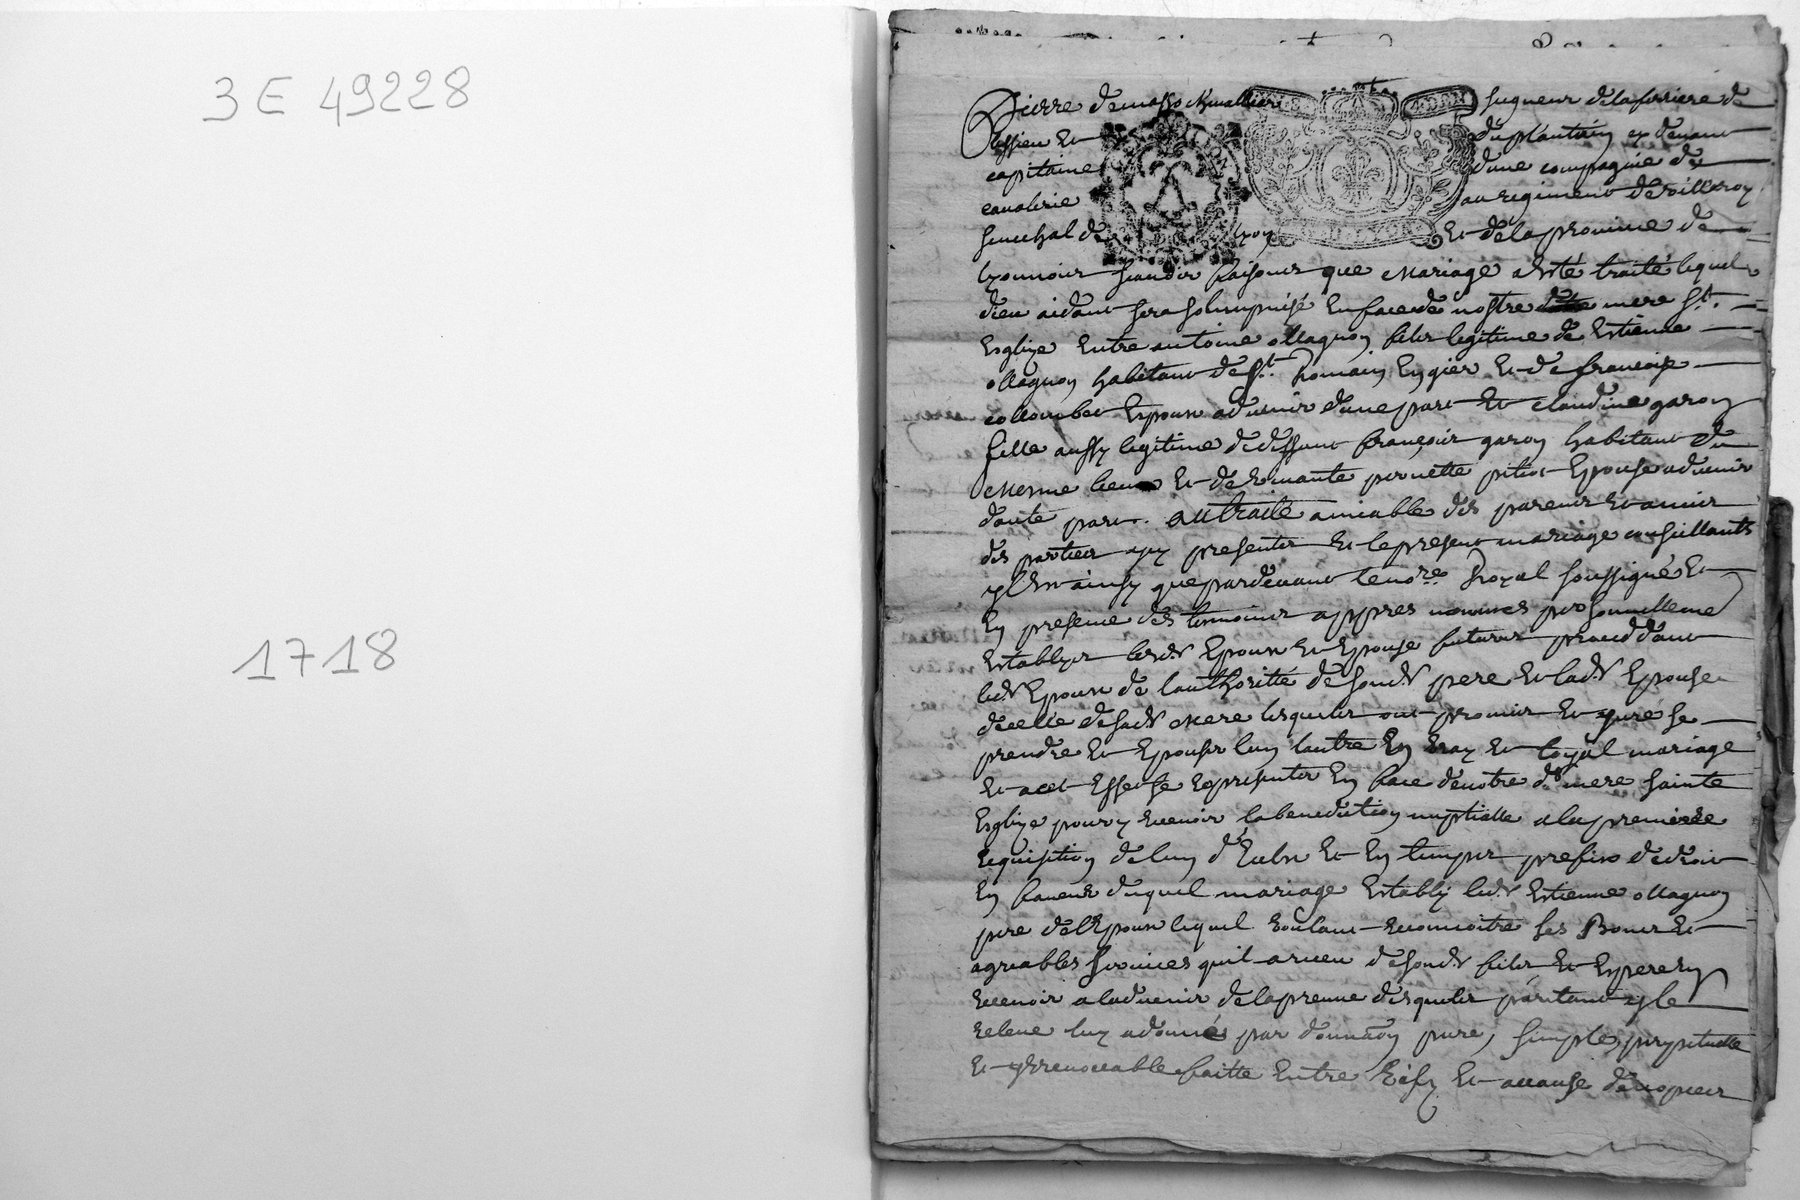 3 E 49228
1718
Pierre demasso chevallier seigneur delaferriere de
lissieu et duplantain cy devant
capitaine dune compagnie de
cavalerie au regiment devilleroy
senechal de lyon et delaprovince de
lyonnois scavoir faisons que mariage a esté traité lequel
dieu aidant sera solempnisé enfacede nostre mere ste
esglize entre antoine ollagnon fils legitime de estienne
ollagnon habitant de st romain en gier et de françoise
collombet epoux advenir dune part et claudine garon
fille aussy legitime dedeffunt françois garon habitant du
mesme lieu et de vivante pernette pitiot epouse advenir
dautre part. au traité amiable des parents et amis
des parties icy presents et lepresent mariage conseillants
il est ainsy que pardevant le nore royal soussigné et
en presence des temoins appres nommes personnellement
establys lesdt epoux et epouse futurs procedant
ledt epoux de lauthoritté de sondt pere et ladt epouse
decelle desadt mere lesquels ont promis et juré se
prendre et epouser lun lautre en vray et loyal mariage
et acet effet se representer en face denotre de mere sainte
esglize pour y recevoir labenediction nuptialle alapremiere
requisition delun deulx et en temps prefix dedroit
en faveur duquel mariage establi ledt estienne ollagnon
pere delepoux lequel voulant reconnoitre les bons et
agreables services quil areceu desondt fils et espere en
recevoir aladvenir delapreuve desquels portant il le
releve luy adonné par donnaõn pure, simple, perpetuelle
et irrevocable faitte entre vifs et acause denopces